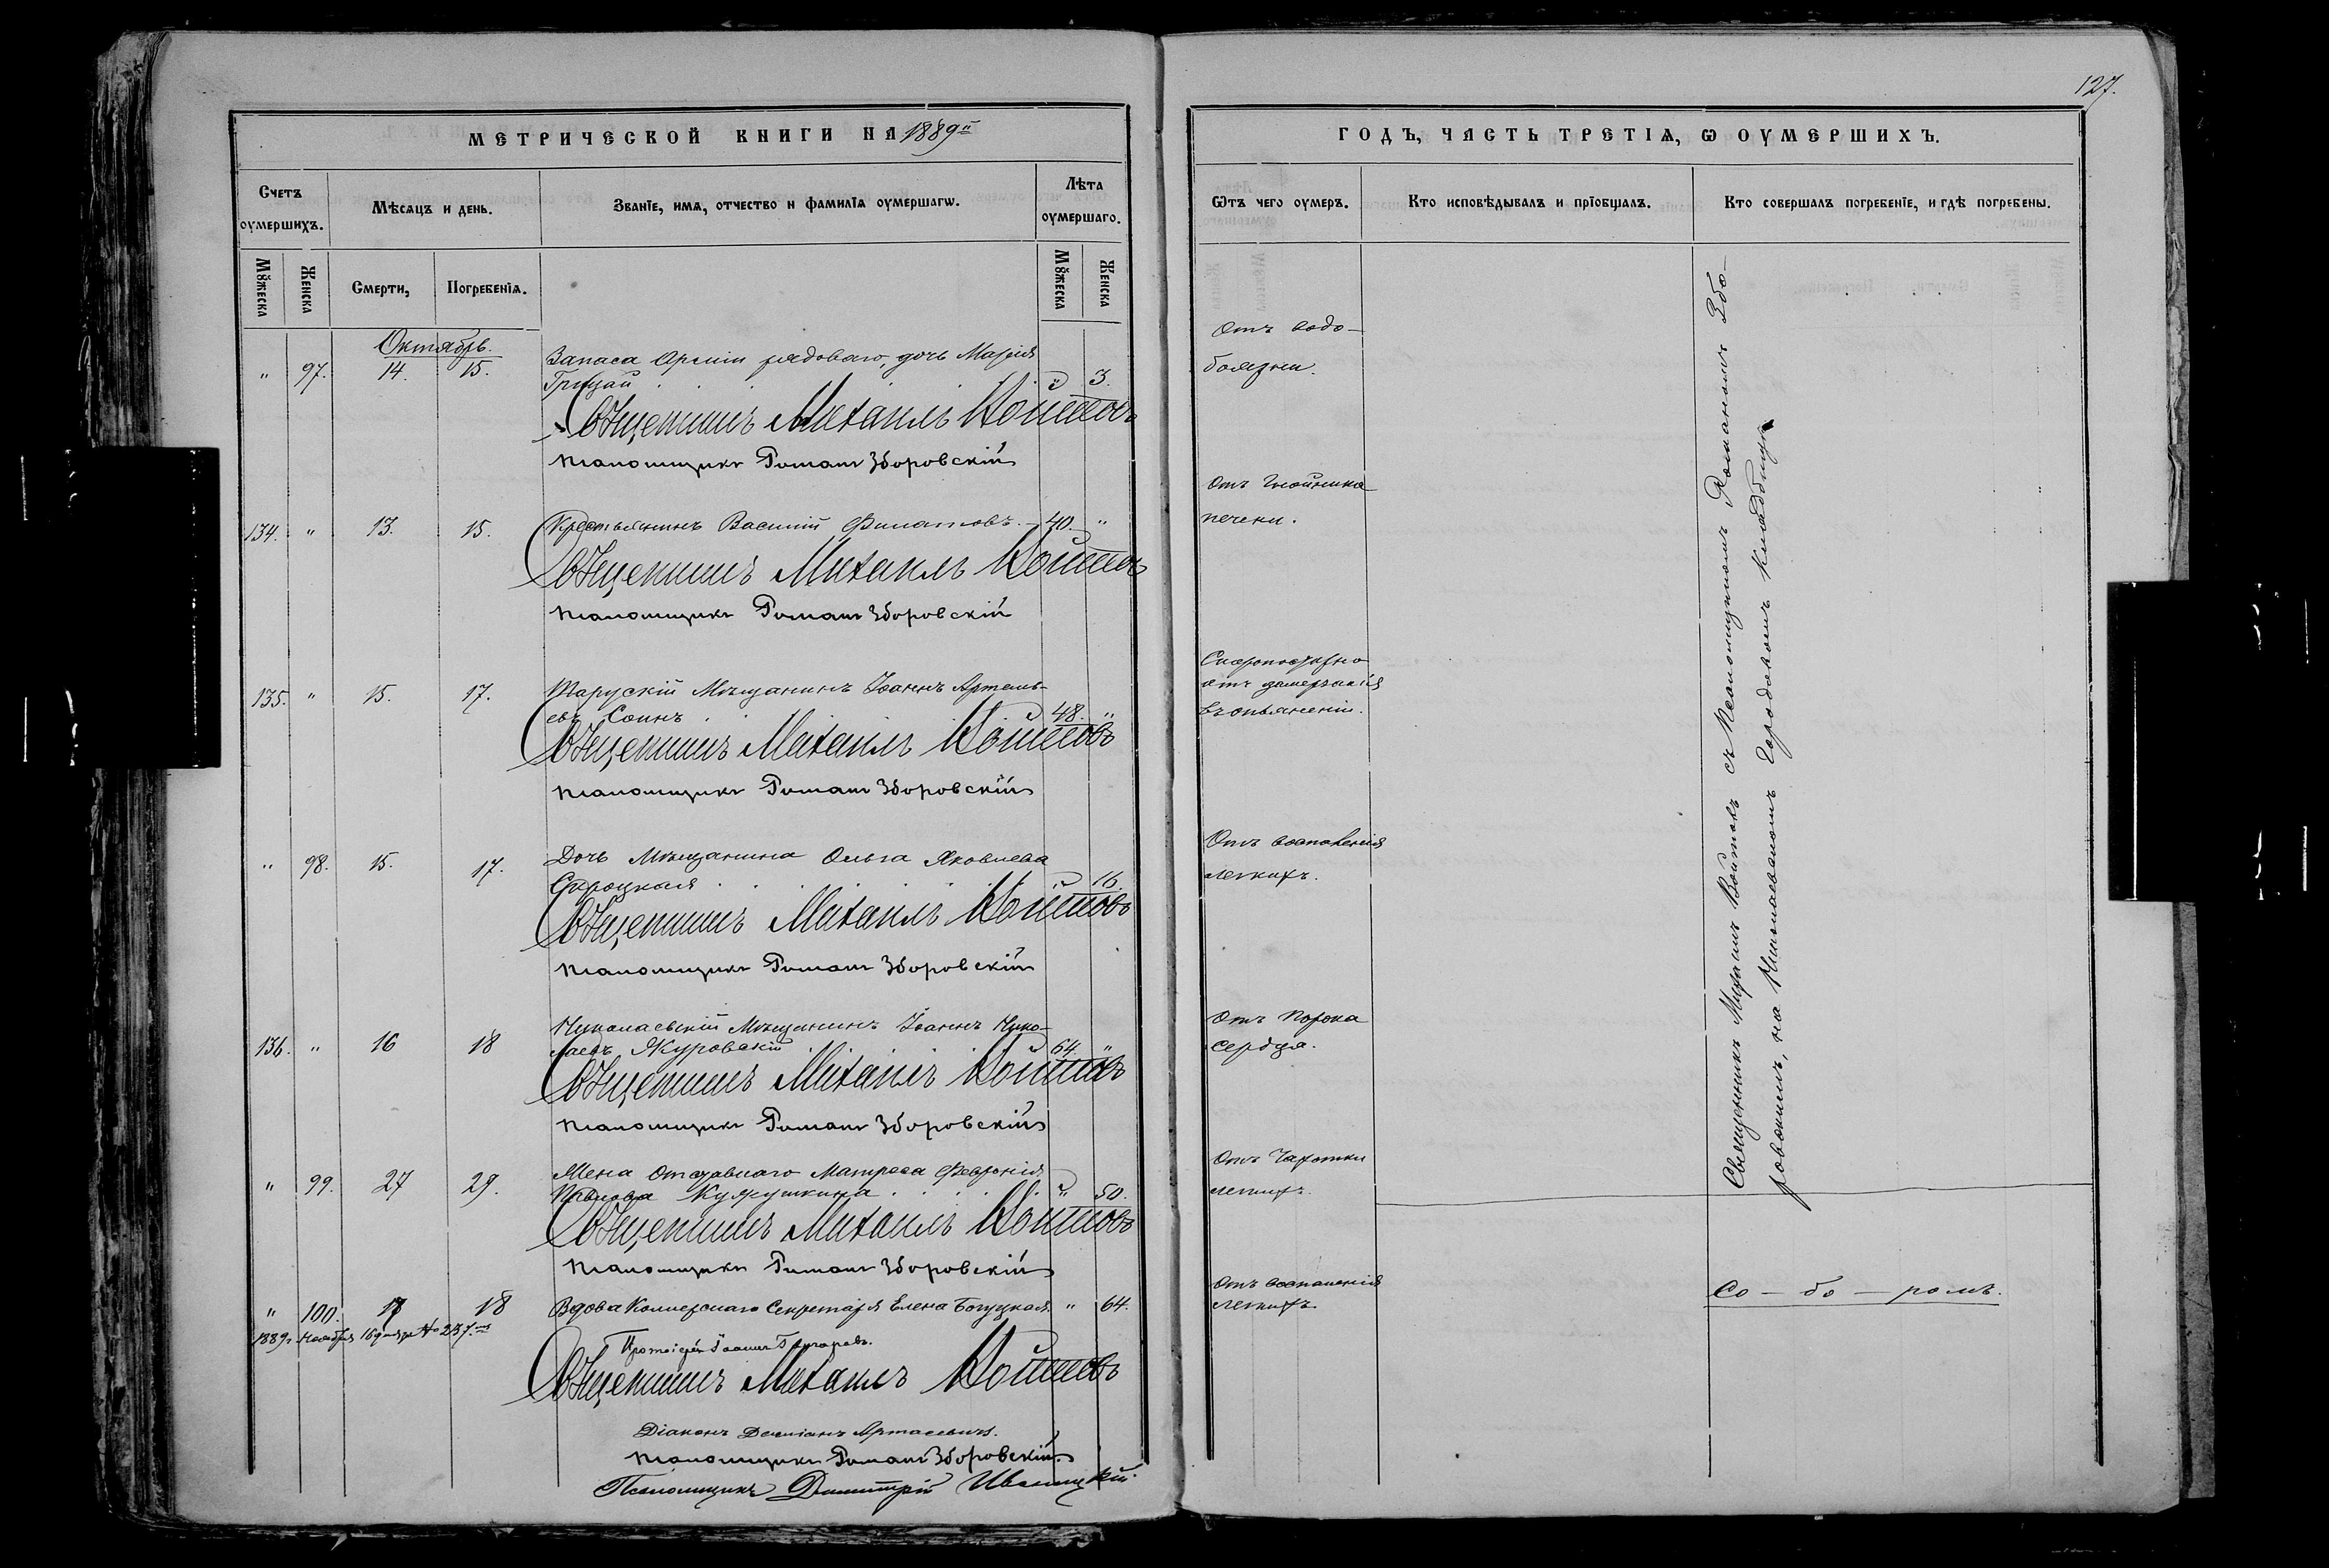 127.
МЕТРИЧЕСКОЙ КНИГИ НА 1889й
Счетъ оумершихъ.
Мѣсяцъ и день.
Званіе, имя, отчество и фамилія оумершагѡ.
Лѣта оумершаго.
Мꙋжеска
Женска
Смерти,
Погребенія.
Мꙋжеска
Женска
Октябрь.
" 97. 14. 15. Запаса Арміи рядоваго, дочь Марія
Грицай " 3.
Священникъ Михаилъ
Псаломщикъ Романъ Зборовскій
134. " 13. 15. Крестьянинъ Василій Филатовъ. 40. "
Священникъ Михаилъ
Псаломщикъ Романъ Зборовскій
135. " 15. 17. Тарускій Мѣщанинъ Іоаннъ Артемь-
евъ Сомнъ 48. "
Священникъ Михаилъ
Псаломщикъ Романъ Зборовскій
" 98. 15. 17. Дочь Мѣщанина Ольга Яковлева
" 16.
Священникъ Михаилъ
Псаломщикъ Романъ Зборовскій
136. " 16 18 Николаевскій Мѣщанинъ Іоаннъ Нико-
лаевъ Журовскій 64. "
Священникъ Михаилъ
Псаломщикъ Романъ Зборовскій
" 99. 27 29. Жена Отставнаго Матроса Февронія
Кукушкина " 50.
Священникъ Михаилъ
Псаломщикъ Романъ Зборовскій
" 100. 17 18 Вдова Коллежскаго Секретаря Елена Богуцкая " 64.
1889г. Ноября 16 дня за № 257.
Протоіерей Іоаннъ
Священникъ Михаилъ
Діаконъ Даміанъ Артасевичъ.
Псаломщикъ Романъ Зборовскій.
Псаломщикъ Димитрій Иваницкій.
ГОДЪ, ЧАСТЬ ТРЕТІѦ, Ѡ ОУМЕРШИХЪ.
Ѿтъ чего оумеръ.
Кто исповѣдывалъ и пріобщалъ.
Кто совершалъ погребеніе, и гдѣ погребены.
Отъ водо-
боязни.
Отъ Гнойника
печени.
Скоропостижно
отъ замерзанія
въ опьяненіи.
Отъ воспаленія
легкихъ.
Отъ Порока
сердца.
Отъ Чахотки
легкихъ.
Отъ воспаленія
легкихъ.
Священникъ Михаилъ съ Псаломщикомъ Романомъ Збо-
ровскимъ, на Николаевскомъ Городскомъ Кладбищѣ
Со — бо — ромъ.